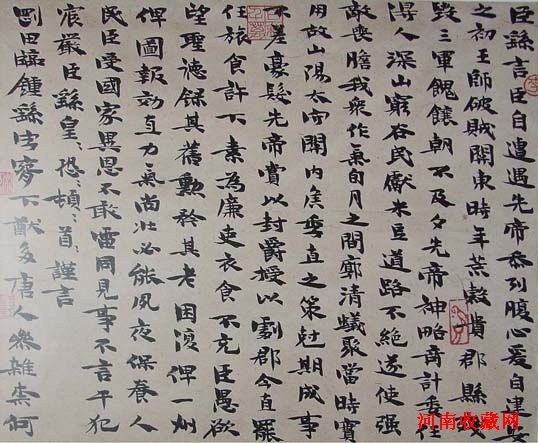 臣繇言臣自遭遇先帝忝列腹心爰自建安
之初王師破賊關東時年荒穀貴郡縣殘
毀三軍餽饟朝不及夕先帝神略奇計委任
得人深山窮谷民獻米豆道路不絕遂使強
敵喪膽我眾作氣旬月之間廓清蟻聚當時實
用故山陽太守關內侯季直之策尅期成事
不差豪髮先帝賞以封爵授以劇郡今直罷
任旅食許下素為廉吏衣食不充臣愚欲
望聖德錄其舊勳矜其老困復俾一州
俾圖報效直力氣尚壯必能夙夜保養人
民臣受國家異恩不敢雷同見事不言干犯
宸嚴臣繇皇:恐:頓:首:謹言
臨鍾繇法下多唐人何
河南收藏网